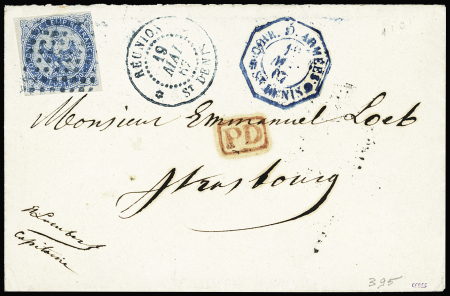 RÉUNION
19
MAI
67
ST DENIS
CORR. D. ARMÉES
19
MAI
67
ST DENIS
Monsieur Emmanuel Loeb
PD
Strasbourg
Capitaine
395